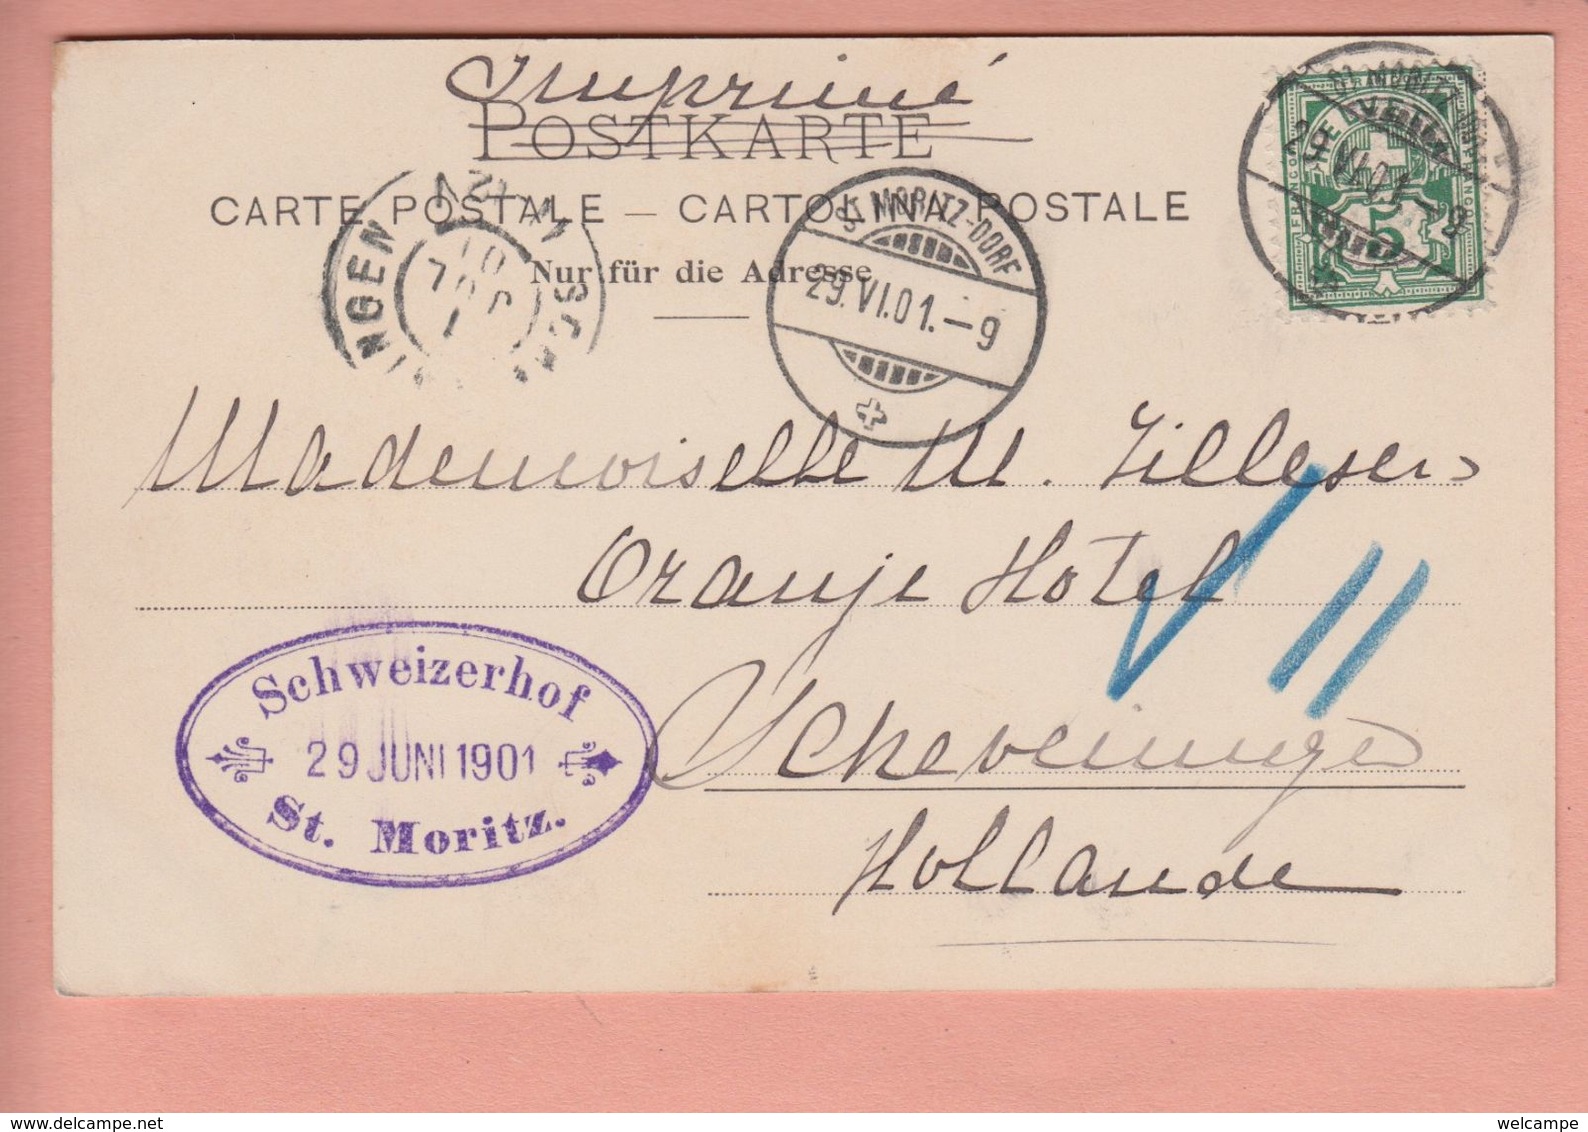 Imprimé
POSTKARTE
CARTE POSTALE — CARTOLINA POSTALE
Nur für die Adresse
ST. MORITZ-DORF
29.VI.01.-9
FRANCO
5
29.VI.01.-9
Mademoiselle M. Tillesen
Oranje Hotel
Scheveningen
Hollande
Schweizerhof
29 JUNI 1901
St. Moritz.
welcampe
welcampe